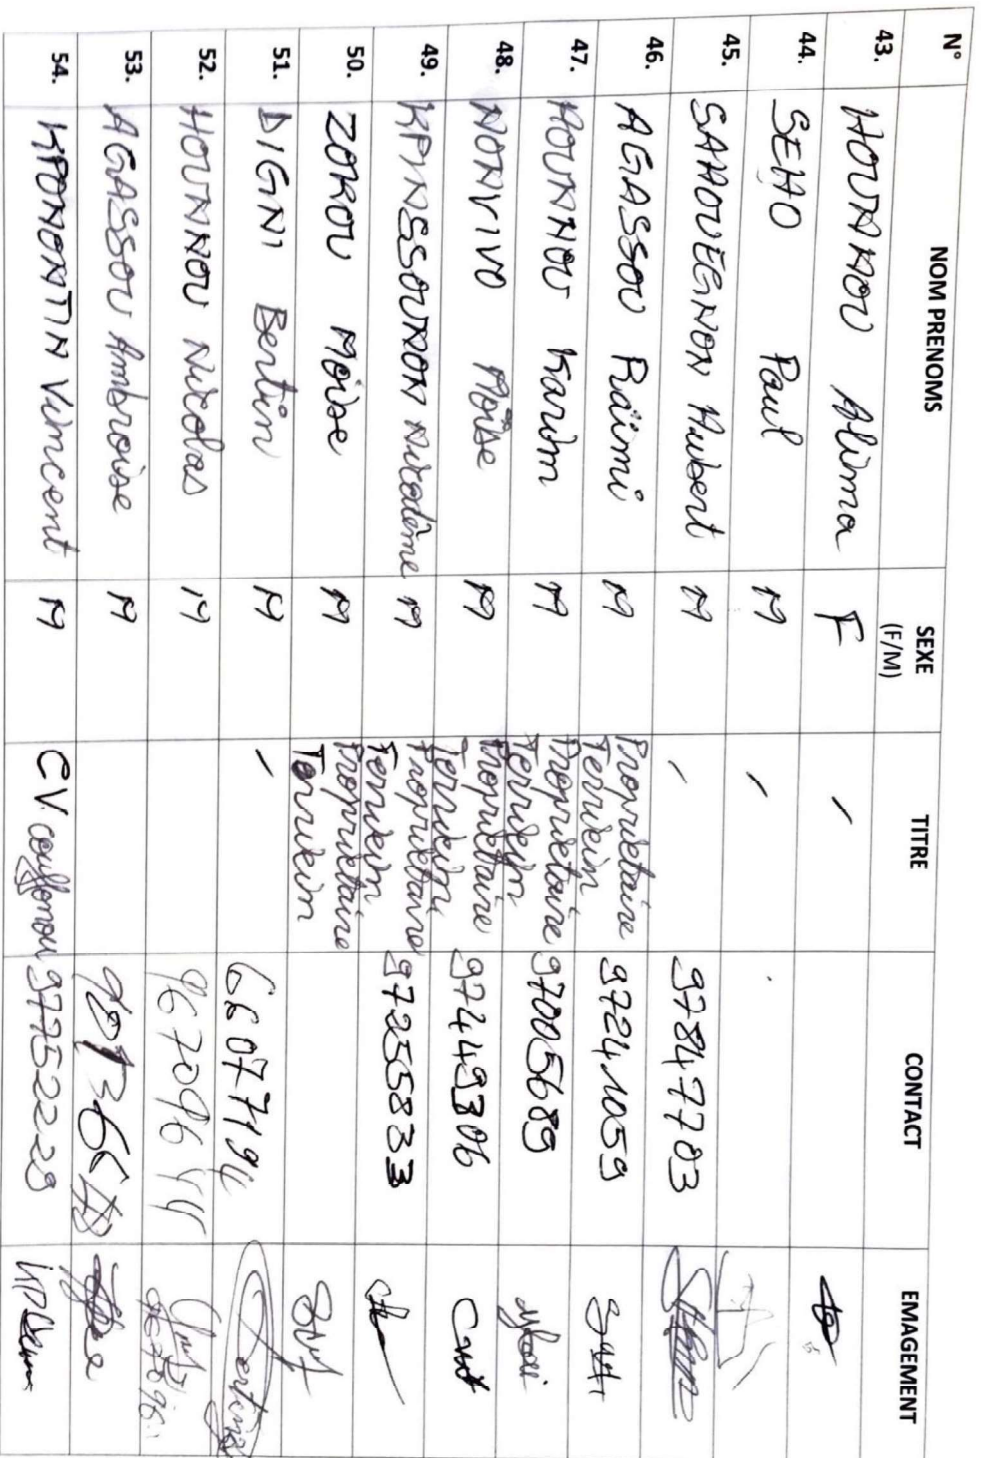 N° NOM PRENOMS SEXE (F/M) TITRE CONTACT EMAGEMENT
43. HOUNNOU Alima F -
44. SEHO Paul M -
45. SAHOUEGNON Hubert M - 97847783
46. AGASSOU Raïmi M Proprietaire Terrien 97241059
47. HOUNNOU Karim M Proprietaire Terrien 97005689
48. NONVIVO Moïse M Proprietaire Terrien 97449306
49. KPINSSOUNON Nicodème M Proprietaire Terrien 97255833
50. ZOKOU Moïse M Proprietaire Terrien
51. DIGNI Bertin M - 66077194
52. HOUNNOU Nicolas M 96709644
53. AGASSOU Ambroise M
54. KPONONTIN Vincent M CV couffonou 97752229